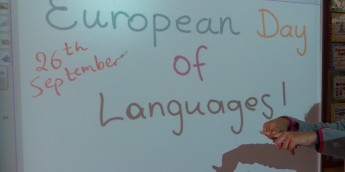 European Day
26th
September
of
Languages!